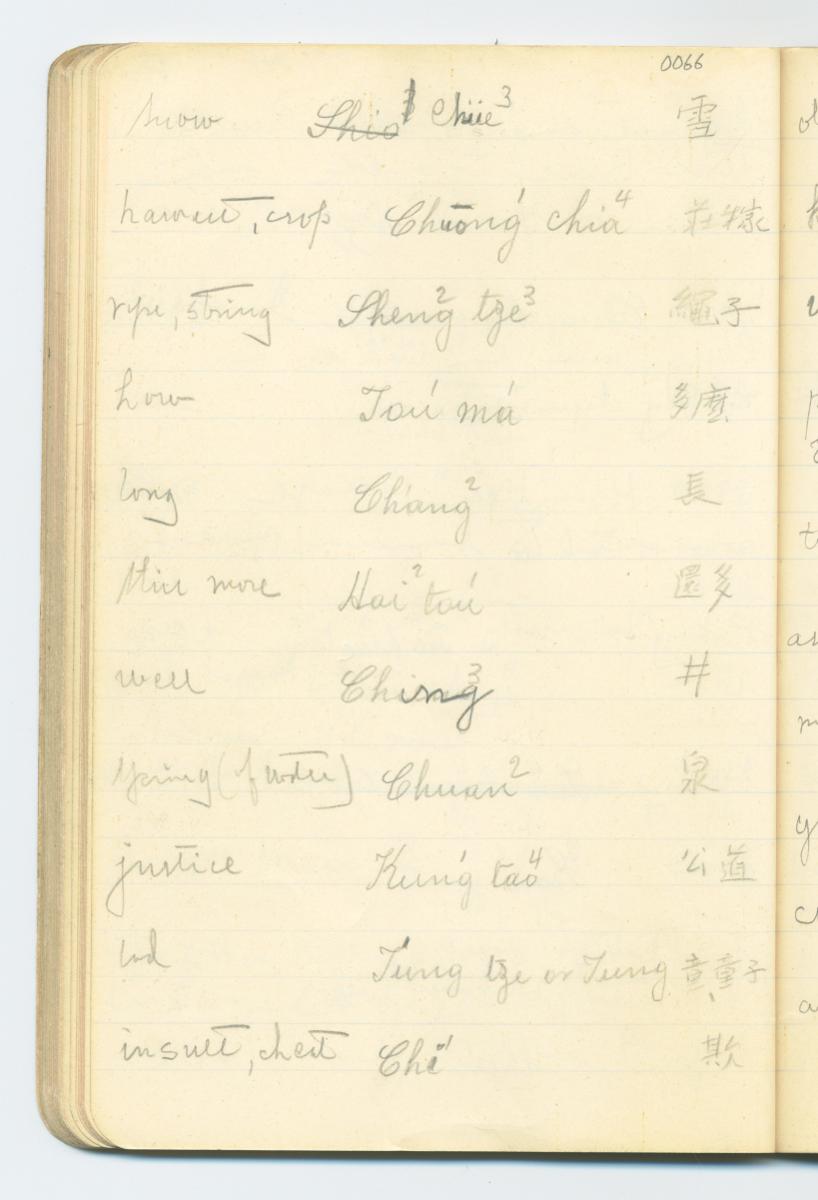 0066
snow Shio³ Chüe³ 雪
harvest, crop Chuōng¹ chia⁴ 莊稼
rope, string Sheng² tze³ 繩子
how Toú má 多麼
long Ch'ang² 長
still more Hai² toú 還多
well Ching³ 井
spring (of water) Chuan² 泉
justice Kung¹ tao⁴ 公道
lad T'ung tze or Tung 童、童子
insult, cheat Chi¹ 欺